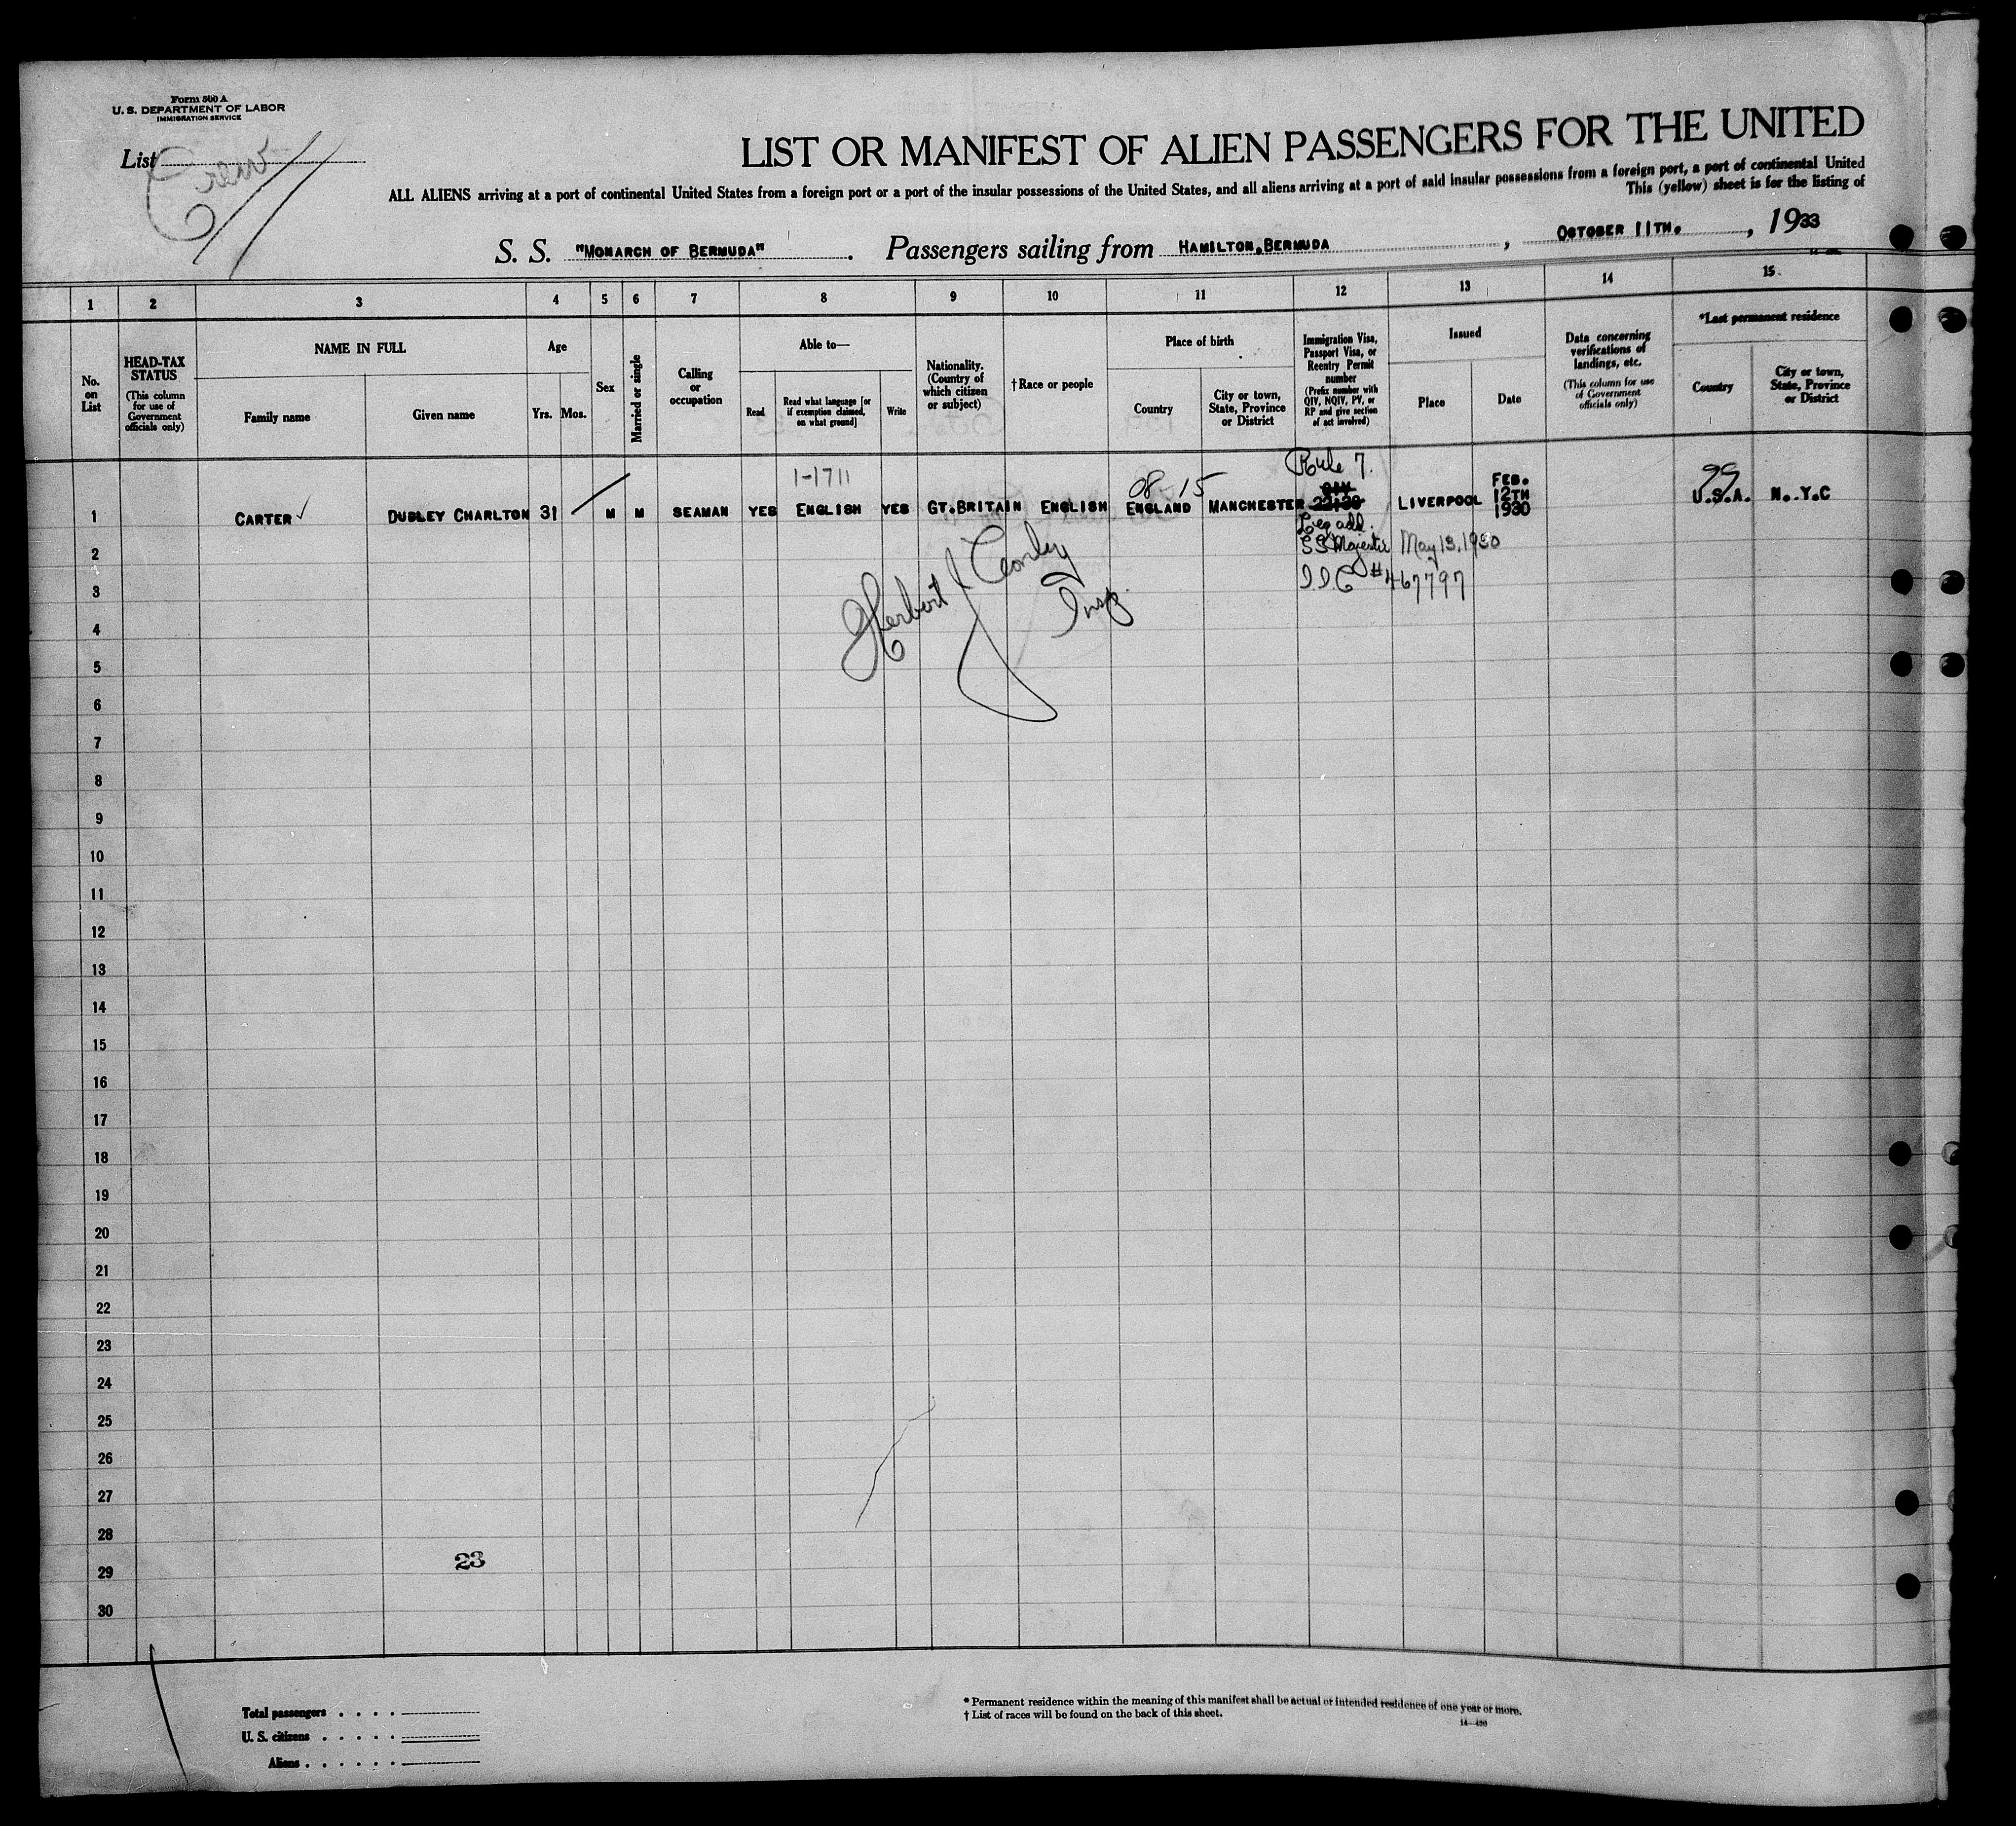 Form 500 A
U. S. DEPARTMENT OF LABOR
IMMIGRATION SERVICE
List Crew
LIST OR MANIFEST OF ALIEN PASSENGERS FOR THE UNITED
ALL ALIENS arriving at a port of continental United States from a foreign port or a port of the insular possessions of the United States, and all aliens arriving at a port of said insular possessions from a foreign port, a port of continental United
This (yellow) sheet is for the listing of
S. S. "MONARCH OF BERMUDA". Passengers sailing from HAMILTON,BERMUDA, OCTOBER 11TH., 1933
1 2 3 4 5 6 7 8 9 10 11 12 13 14 15
No. on List
HEAD-TAX STATUS
(This column for use of Government officials only)
NAME IN FULL
Family name
Given name
Age
Yrs. Mos.
Sex
Married or single
Calling or occupation
Able to—
Read
Read what language [or if exemption claimed, on what ground]
Write
Nationality. (Country of which citizen or subject)
†Race or people
Place of birth
Country
City or town, State, Province or District
Immigration Visa, Passport Visa, or Reentry Permit number
(Prefix number with QIV, NQIV, PV, or RP and give section of act involved)
Issued
Place
Date
Data concerning verifications of landings, etc.
(This column for use of Government officials only)
*Last permanent residence
Country
City or town, State, Province or District
Rule 7.
1-1711
08-15
99
1 CARTER ✓ DUDLEY CHARLTON 31 M M SEAMAN YES ENGLISH YES GT.BRITAIN ENGLISH ENGLAND MANCHESTER LIVERPOOL FEB. 12TH 1930 U.S.A. N.Y.C
Leg adl.
2 SS Majestic May 13, 1930
3 I.I.C #467797
Herbert J Conley
Insp.
4
5
6
7
8
9
10
11
12
13
14
15
16
17
18
19
20
21
22
23
24
25
26
27
28
23
29
30
Total passengers . . . .
U. S. citizens . . . . .
Aliens . . . . . .
* Permanent residence within the meaning of this manifest shall be actual or intended residence of one year or more.
† List of races will be found on the back of this sheet.
14—430